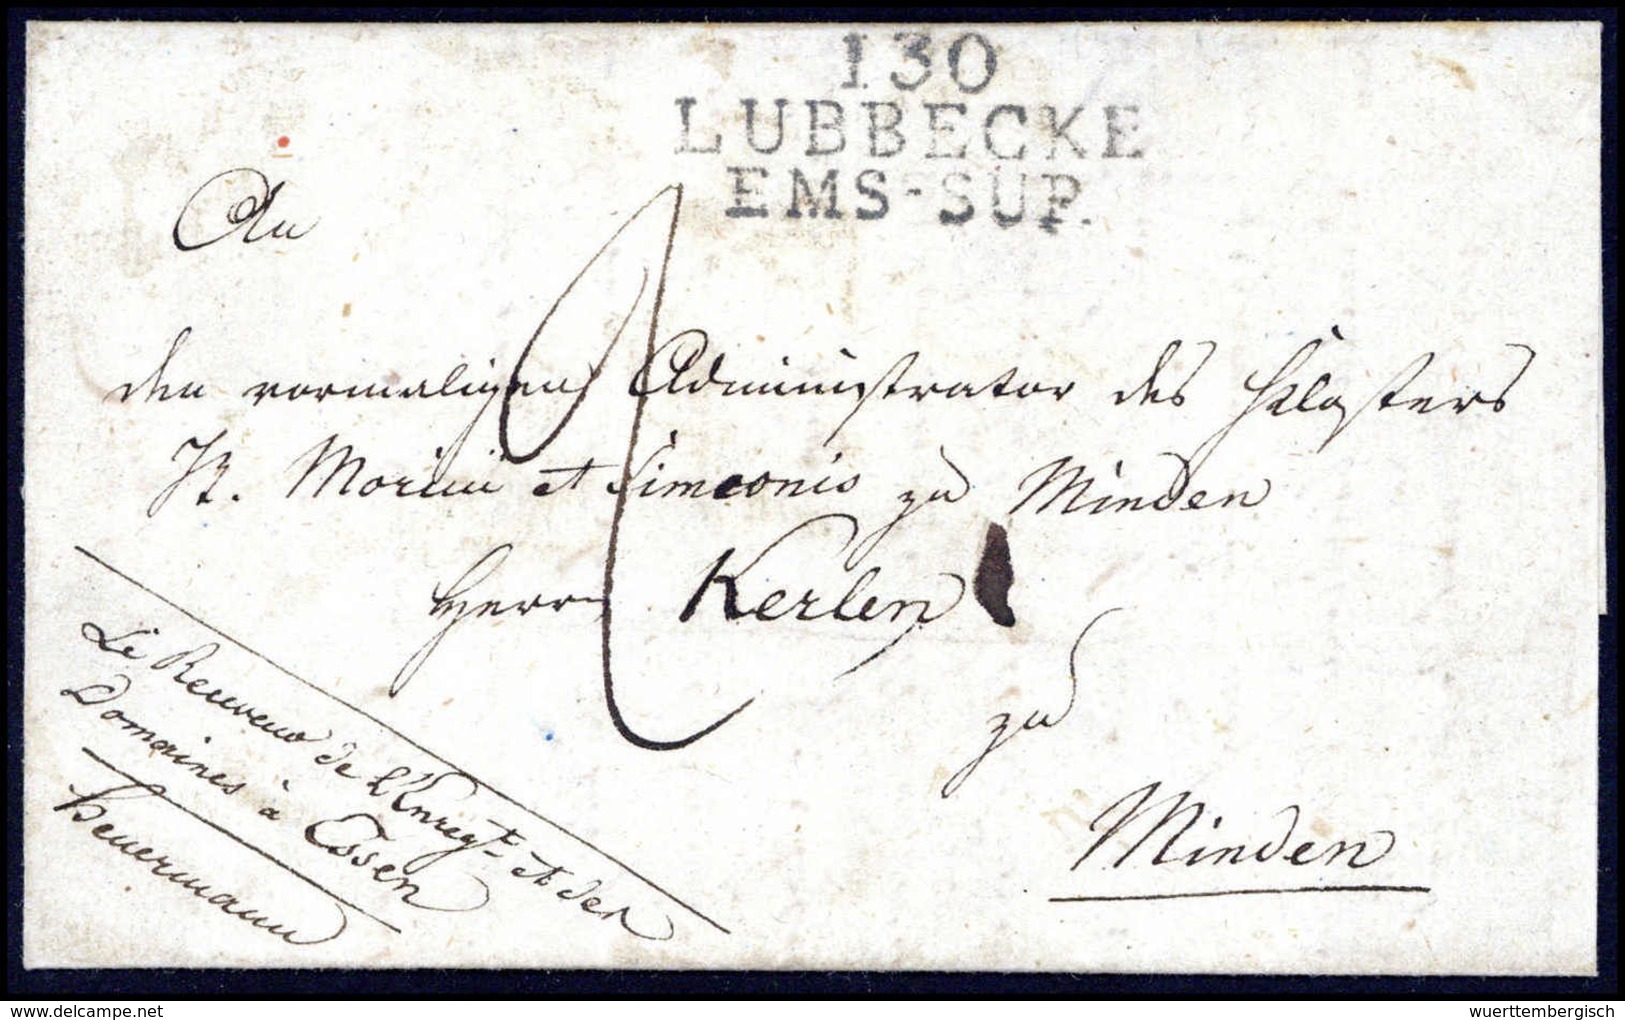 130
LUBBECKE
EMS-SUP.
An
den vormaligen Administrator des Klosters
St. Morini et Simeonis zu Minden
Herrn Kerlen
zu
Minden
Le Receveur de l'Enregt et des
Domaines à Essen
Heuermann
delcampe.net
wuerttembergisch